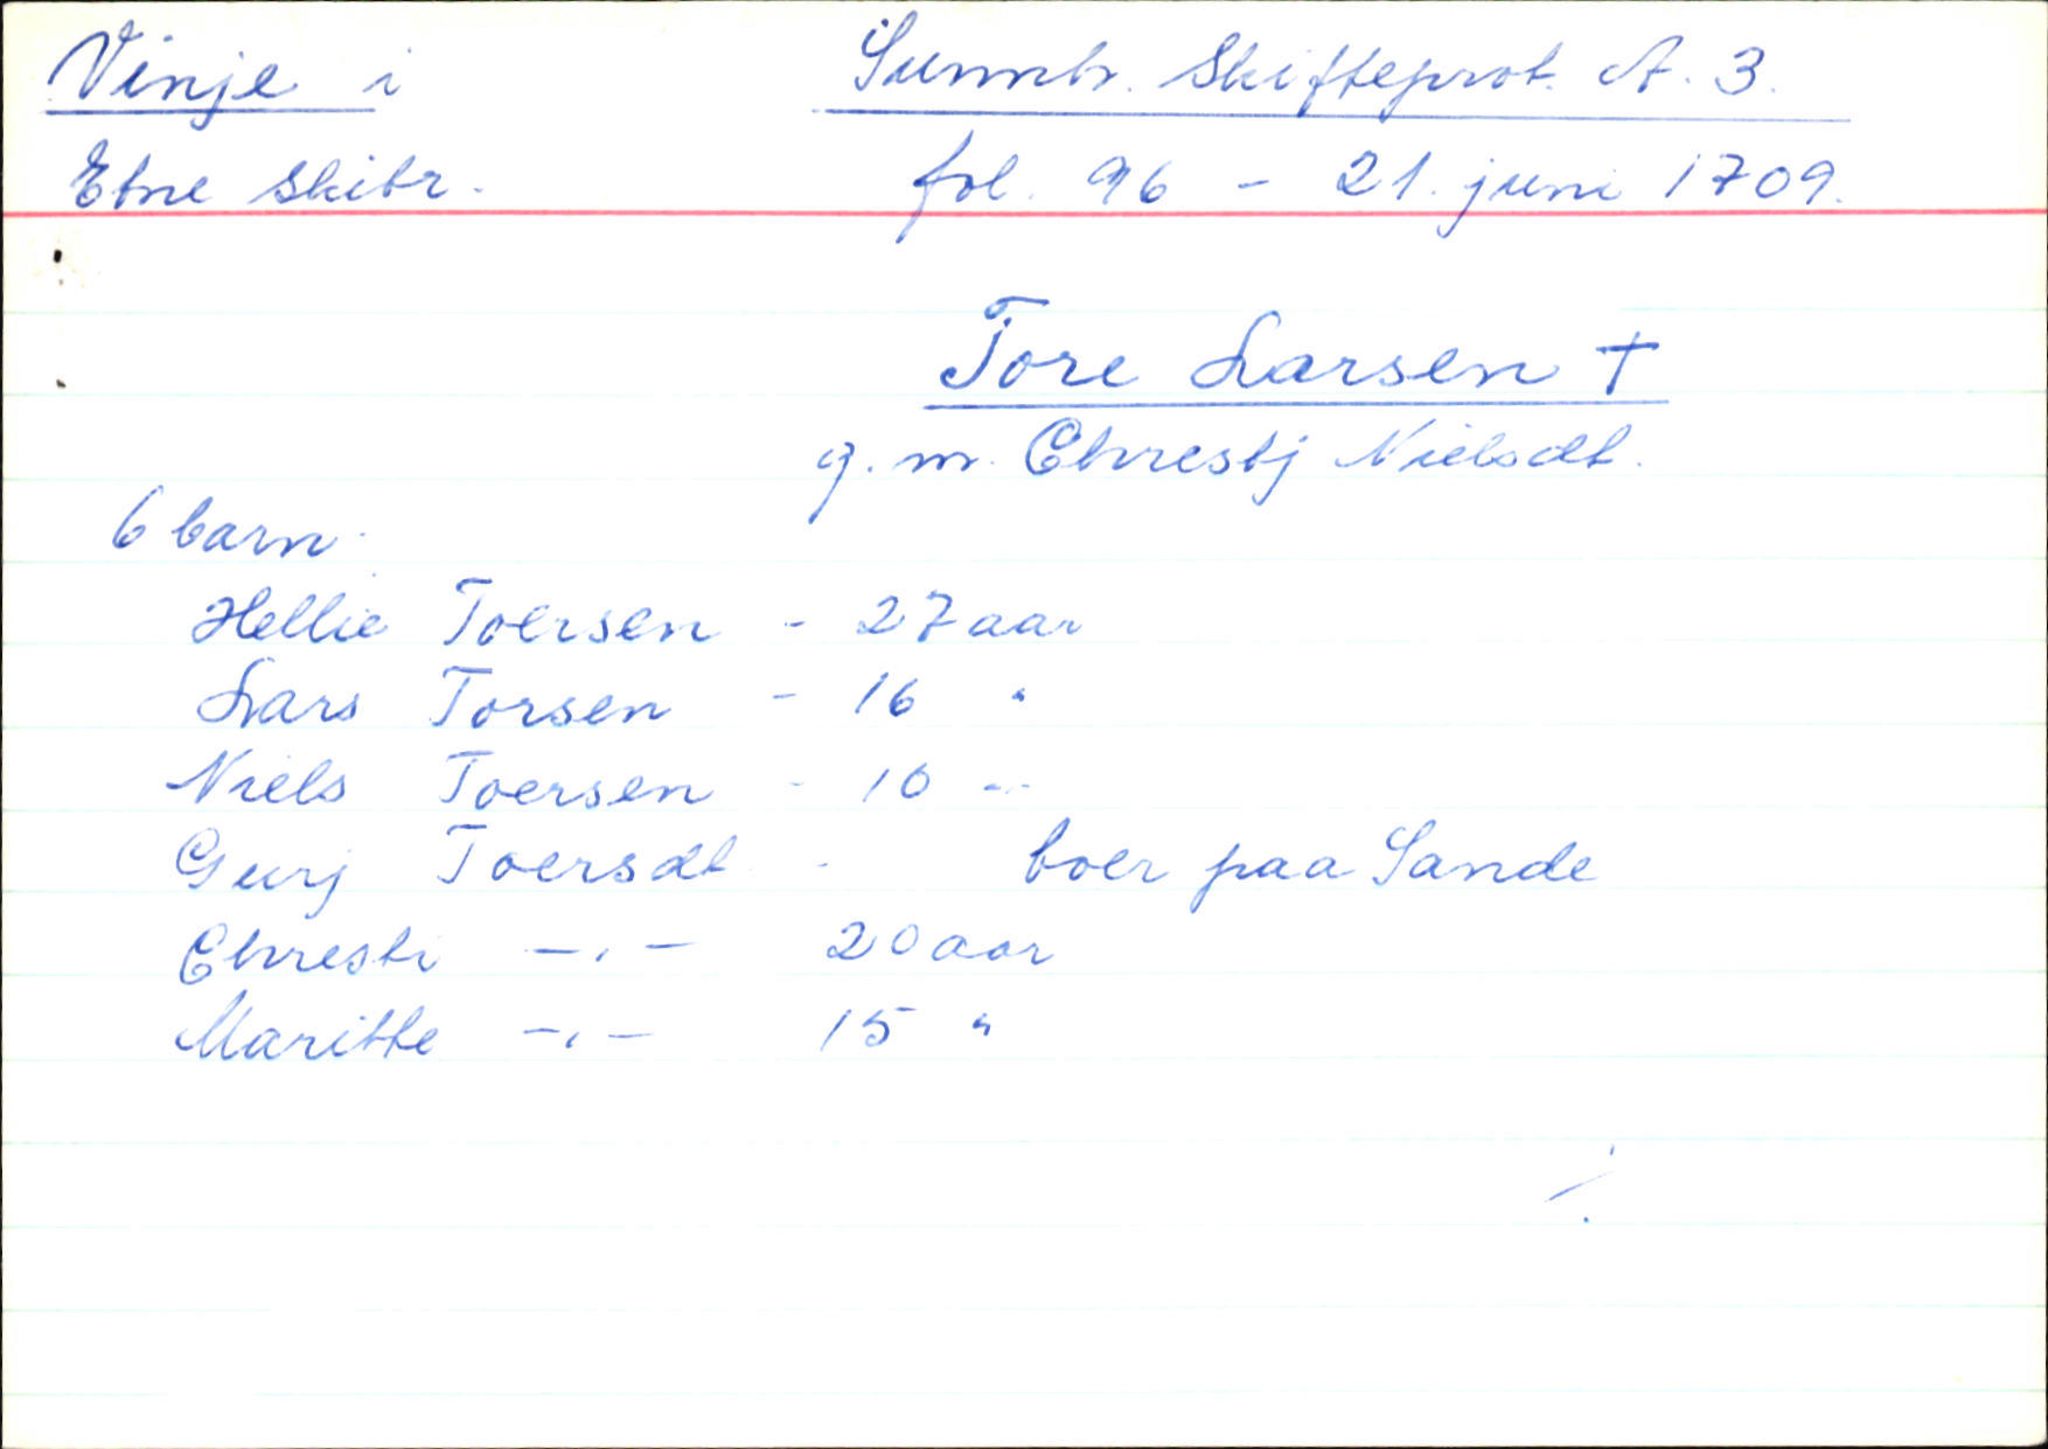 Vinje i
Sunnh. Skifteprot. A. 3.
Etne skibr.
fol. 96 - 21. juni 1709.
Tore Larsen †
g. m. Chrestj Nielsdt.
6 barn.
Hellie Toersen - 27 aar
Lars Torsen - 16 "
Niels Toersen - 10 -"-
Gurj Toersdt - boer paa Sande
Chresti -"- 20 aar
Maritte -"- 15 "